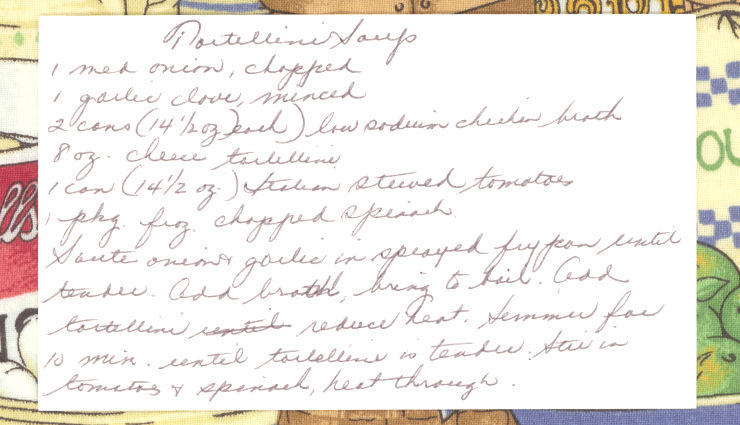 Tortellini Soup
1 med onion, chopped
1 garlic clove, minced
2 cans (14 1/2 oz) each) low sodium chicken broth
8 oz. cheese tortellini
1 can (14 1/2 oz.) Italian stewed tomatoes
1 pkg. froz. chopped spinach
Saute onion & garlic in sprayed frypan until
tender. Add broth, bring to boil. Add
tortellini until reduce heat. Simmer for
10 min. until tortellini is tender. Stir in
tomatoes & spinach, heat through.
lls
OU